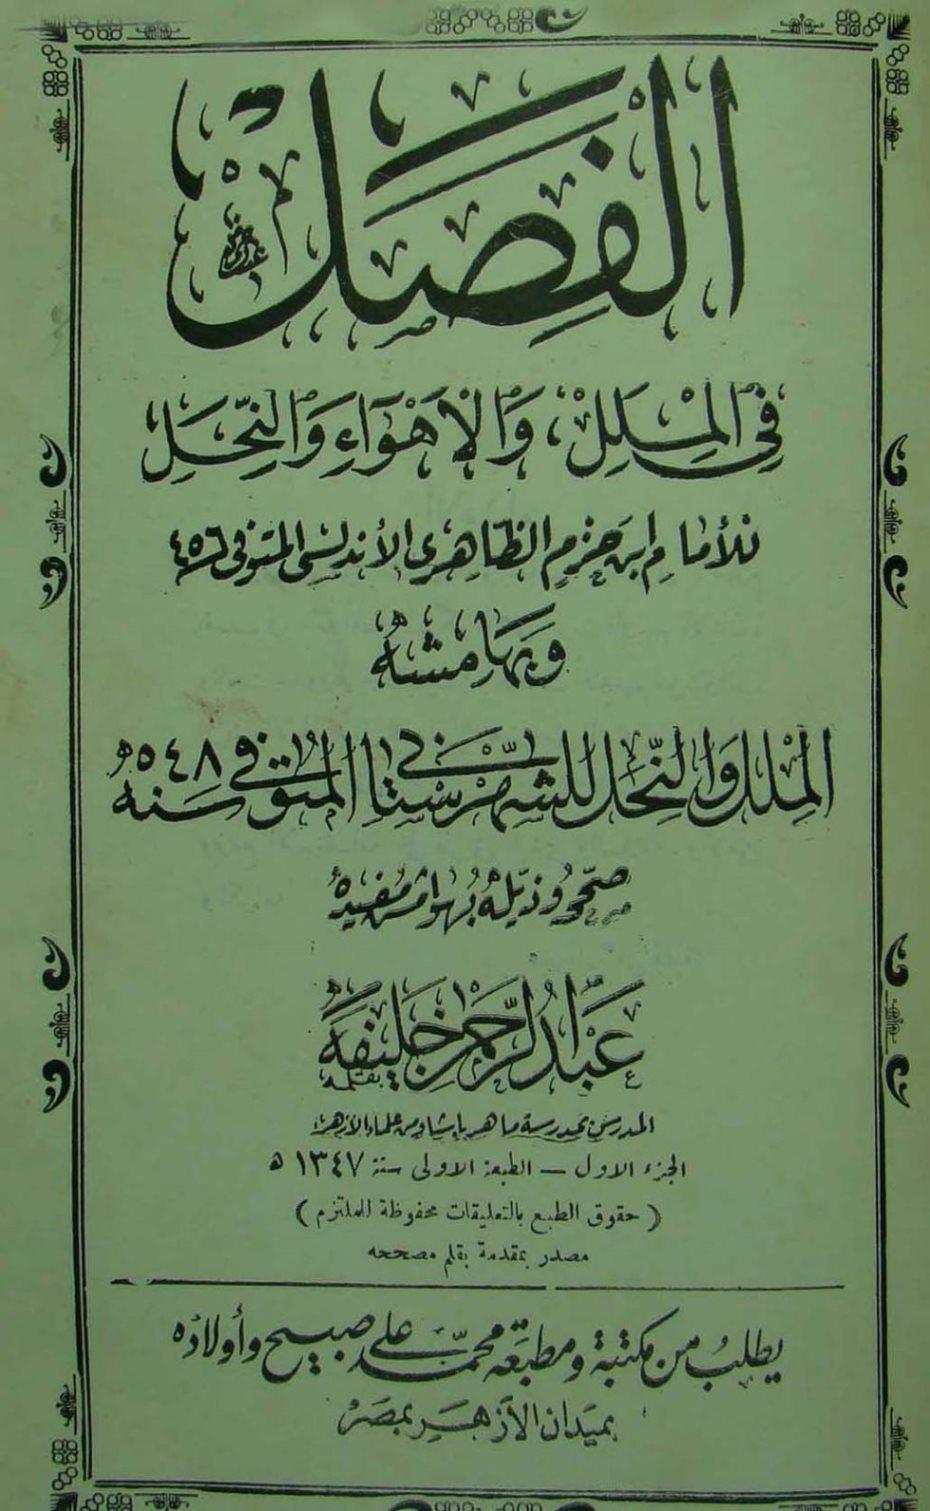 الفِصَلْ
فِي الْمِلَلِ، وَالْأَهْوَآءِ وَالنِّحَلِ
للأمام ابن حزم الظاهرى الأندلسى المتوفى ٤٥٦
وبهامشه
الملل والنحل للشهرستانى المتوفى سنة ٥٤٨ ه
صححه وذيله بهوامش مفيدة
عبد الرحمن خليفة
المدرس بمدرسة ماهر باشا ومن علماء الازهر
الجزء الاول — الطبعة الاولى سنة ١٣٤٧ ه
( حقوق الطبع بالتعليقات محفوظة للملتزم )
مصدر بمقدمة بقلم مصححه
يطلب من مكتبة ومطبعة محمد على صبيح وأولاده
بميدان الأزهر بمصر